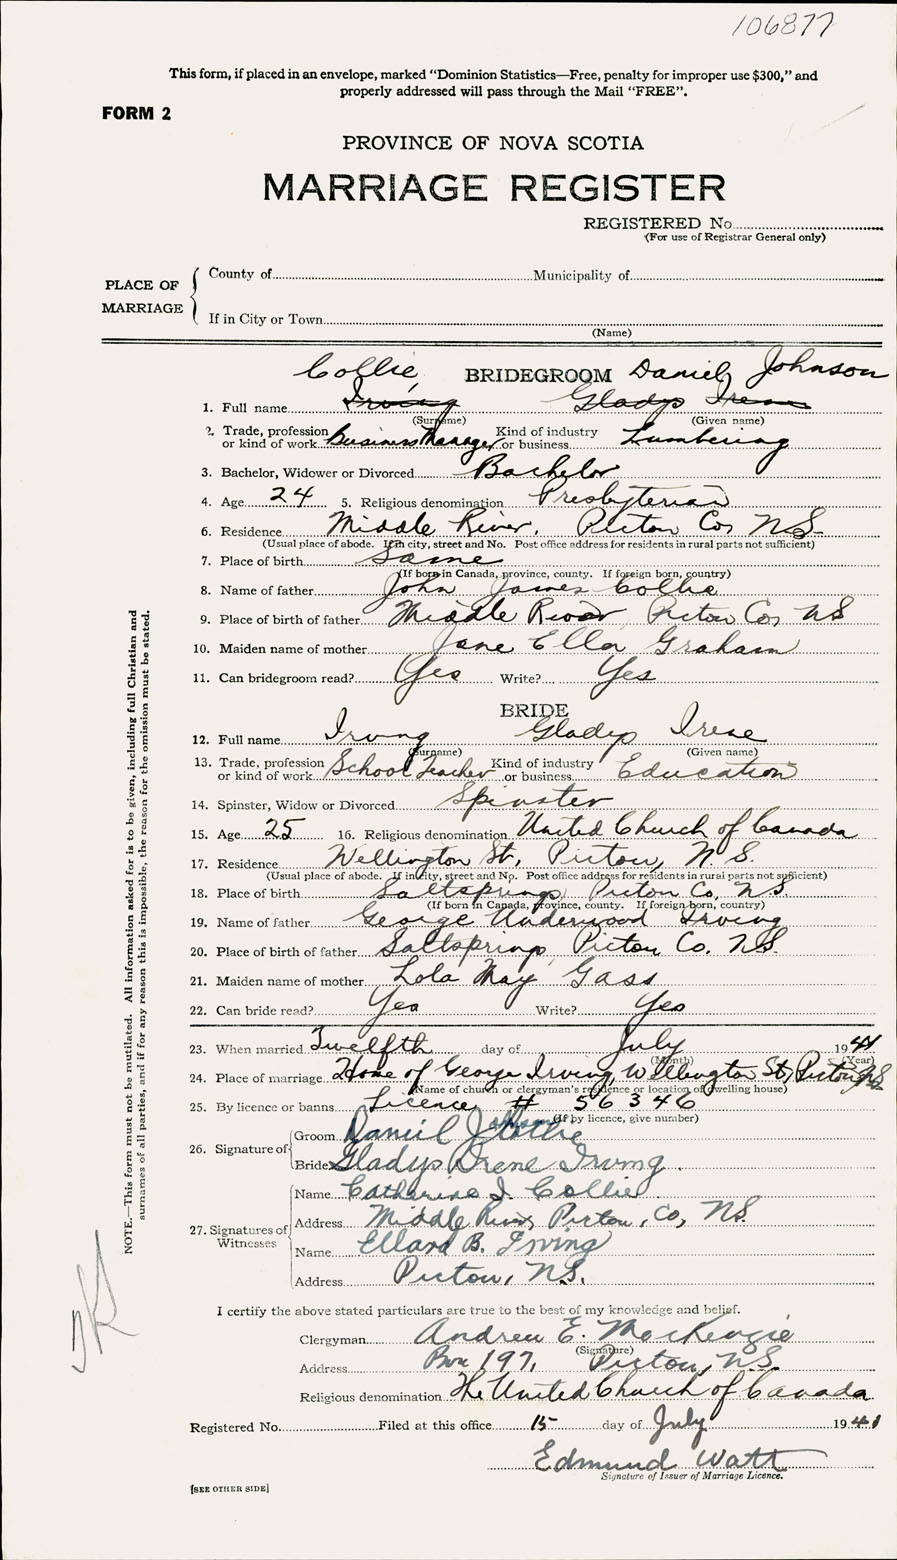 106877
This form, if placed in an envelope, marked “Dominion Statistics—Free, penalty for improper use $300,” and
properly addressed will pass through the Mail “FREE”.
FORM 2
PROVINCE OF NOVA SCOTIA
MARRIAGE REGISTER
REGISTERED No.
(For use of Registrar General only)
PLACE OF MARRIAGE
County of Municipality of
If in City or Town
(Name)
Collie BRIDEGROOM Daniel Johnson
1. Full name Irving Gladys Irene
(Surname) (Given name)
2. Trade, profession or kind of work Business Manager Kind of industry or business Lumbering
3. Bachelor, Widower or Divorced Bachelor
4. Age 24 5. Religious denomination Presbyterian
6. Residence Middle River, Pictou Co, N.S.
(Usual place of abode. If in city, street and No. Post office address for residents in rural parts not sufficient)
7. Place of birth Same
(If born in Canada, province, county. If foreign born, country)
8. Name of father John James Collie
9. Place of birth of father Middle River, Pictou Co, N.S
10. Maiden name of mother Jane Ellen Graham
11. Can bridegroom read? Yes Write? Yes
BRIDE
12. Full name Irving Gladys Irene
(Surname) (Given name)
13. Trade, profession or kind of work School Teacher Kind of industry or business Education
14. Spinster, Widow or Divorced Spinster
15. Age 25 16. Religious denomination United Church of Canada
17. Residence Wellington St, Pictou, N.S.
(Usual place of abode. If in city, street and No. Post office address for residents in rural parts not sufficient)
18. Place of birth Saltsprings Pictou Co, N.S.
(If born in Canada, province, county. If foreign born, country)
19. Name of father George Underwood Irving
20. Place of birth of father Saltsprings, Pictou Co. N.S.
21. Maiden name of mother Lola May Gass
22. Can bride read? Yes Write? Yes
23. When married Twelfth day of July 1941
(Month) (Year)
24. Place of marriage Home of George Irving, Wellington St, Pictou N.S
(Name of church or clergyman's residence or location of dwelling house)
25. By licence or banns Licence # 56346
(If by licence, give number)
26. Signature of Groom Daniel Johnson Collie
Bride Gladys Irene Irving.
27. Signatures of Witnesses
Name Catharine I. Collie
Address Middle River, Pictou, Co, N.S.
Name Ellard B. Irving
Address Pictou, N.S.
I certify the above stated particulars are true to the best of my knowledge and belief.
Clergyman Andrew E. MacKenzie
(Signature)
Address Box 197, Pictou, N.S.
Religious denomination The United Church of Canada
Registered No. Filed at this office 15 day of July 1941
Edmund Watt
Signature of Issuer of Marriage Licence.
[SEE OTHER SIDE]
NOTE.—This form must not be mutilated. All information asked for is to be given, including full Christian and
surnames of all parties, and if for any reason this is impossible, the reason for the omission must be stated.